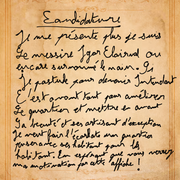 Candidature
Je me présente plus je suis
Le messire Igor Clairval ou
encore surnommé le main. Je
Je postule pour devenir Intendant
C'est avant tout pour améliorer
Le quartier et mettre en avant
Sa beauté et ses artisant d'exception
Je veut faire l'éclat un quartier
personance ses habitant pour
habitant. En espérant que vous verrez
ma motivation par cette affiche!